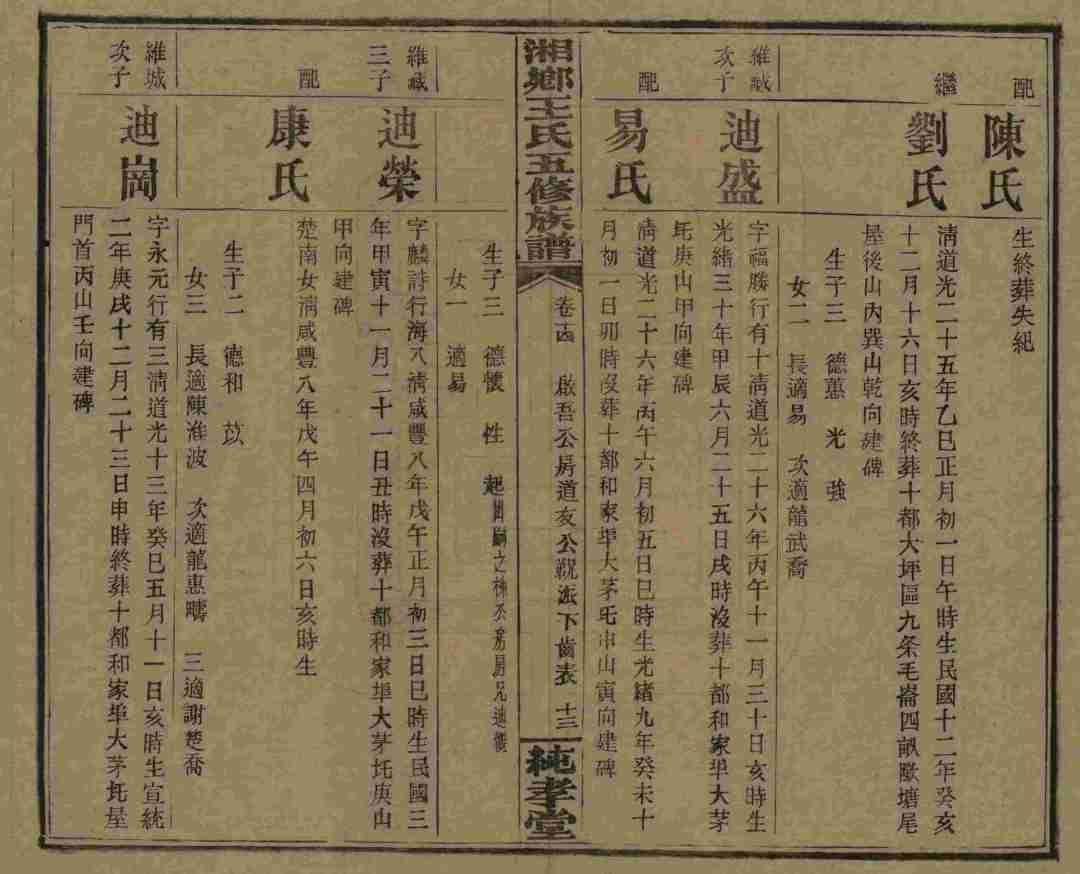 配
陳氏
生終葬失紀
繼
劉氏
淸道光二十五年乙巳正月初一日午時生民國十二年癸亥
十二月十六日亥時終葬十都大坪區九条毛崙四畝墈塘尾
屋後山內巽山乾向建碑
生子三 德蕙 光 強
女二 長適易 次適龍武喬
維藏
次子
迪盛
字福勝行有十淸道光二十六年丙午十一月三十日亥時生
光緒三十年甲辰六月二十五日戌時沒葬十都和家埠大茅
坉庚山甲向建碑
配
易氏
淸道光二十六年丙午六月初五日巳時生光緒九年癸未十
月初一日卯時沒葬十都和家埠大茅坉申山寅向建碑
湘鄉王氏五修族譜
卷十四 啟吾公房道友公視派下齒表 十三
純孝堂
生子三 德懷 性 起 出嗣之棟丞房房兄迪懷
女一 適易
維藏
三子
迪榮
字麟詩行海八淸咸豐八年戊午正月初三日巳時生民國三
年甲寅十一月二十一日丑時沒葬十都和家埠大茅坉庚山
甲向建碑
配
康氏
楚南女淸咸豐八年戊午四月初六日亥時生
生子二 德和 苡
女三 長適陳淮波 次適龍惠疇 三適謝楚喬
維城
次子
迪崗
字永元行有三淸道光十三年癸巳五月十一日亥時生宣統
二年庚戌十二月二十三日申時終葬十都和家埠大茅坉屋
門首丙山壬向建碑